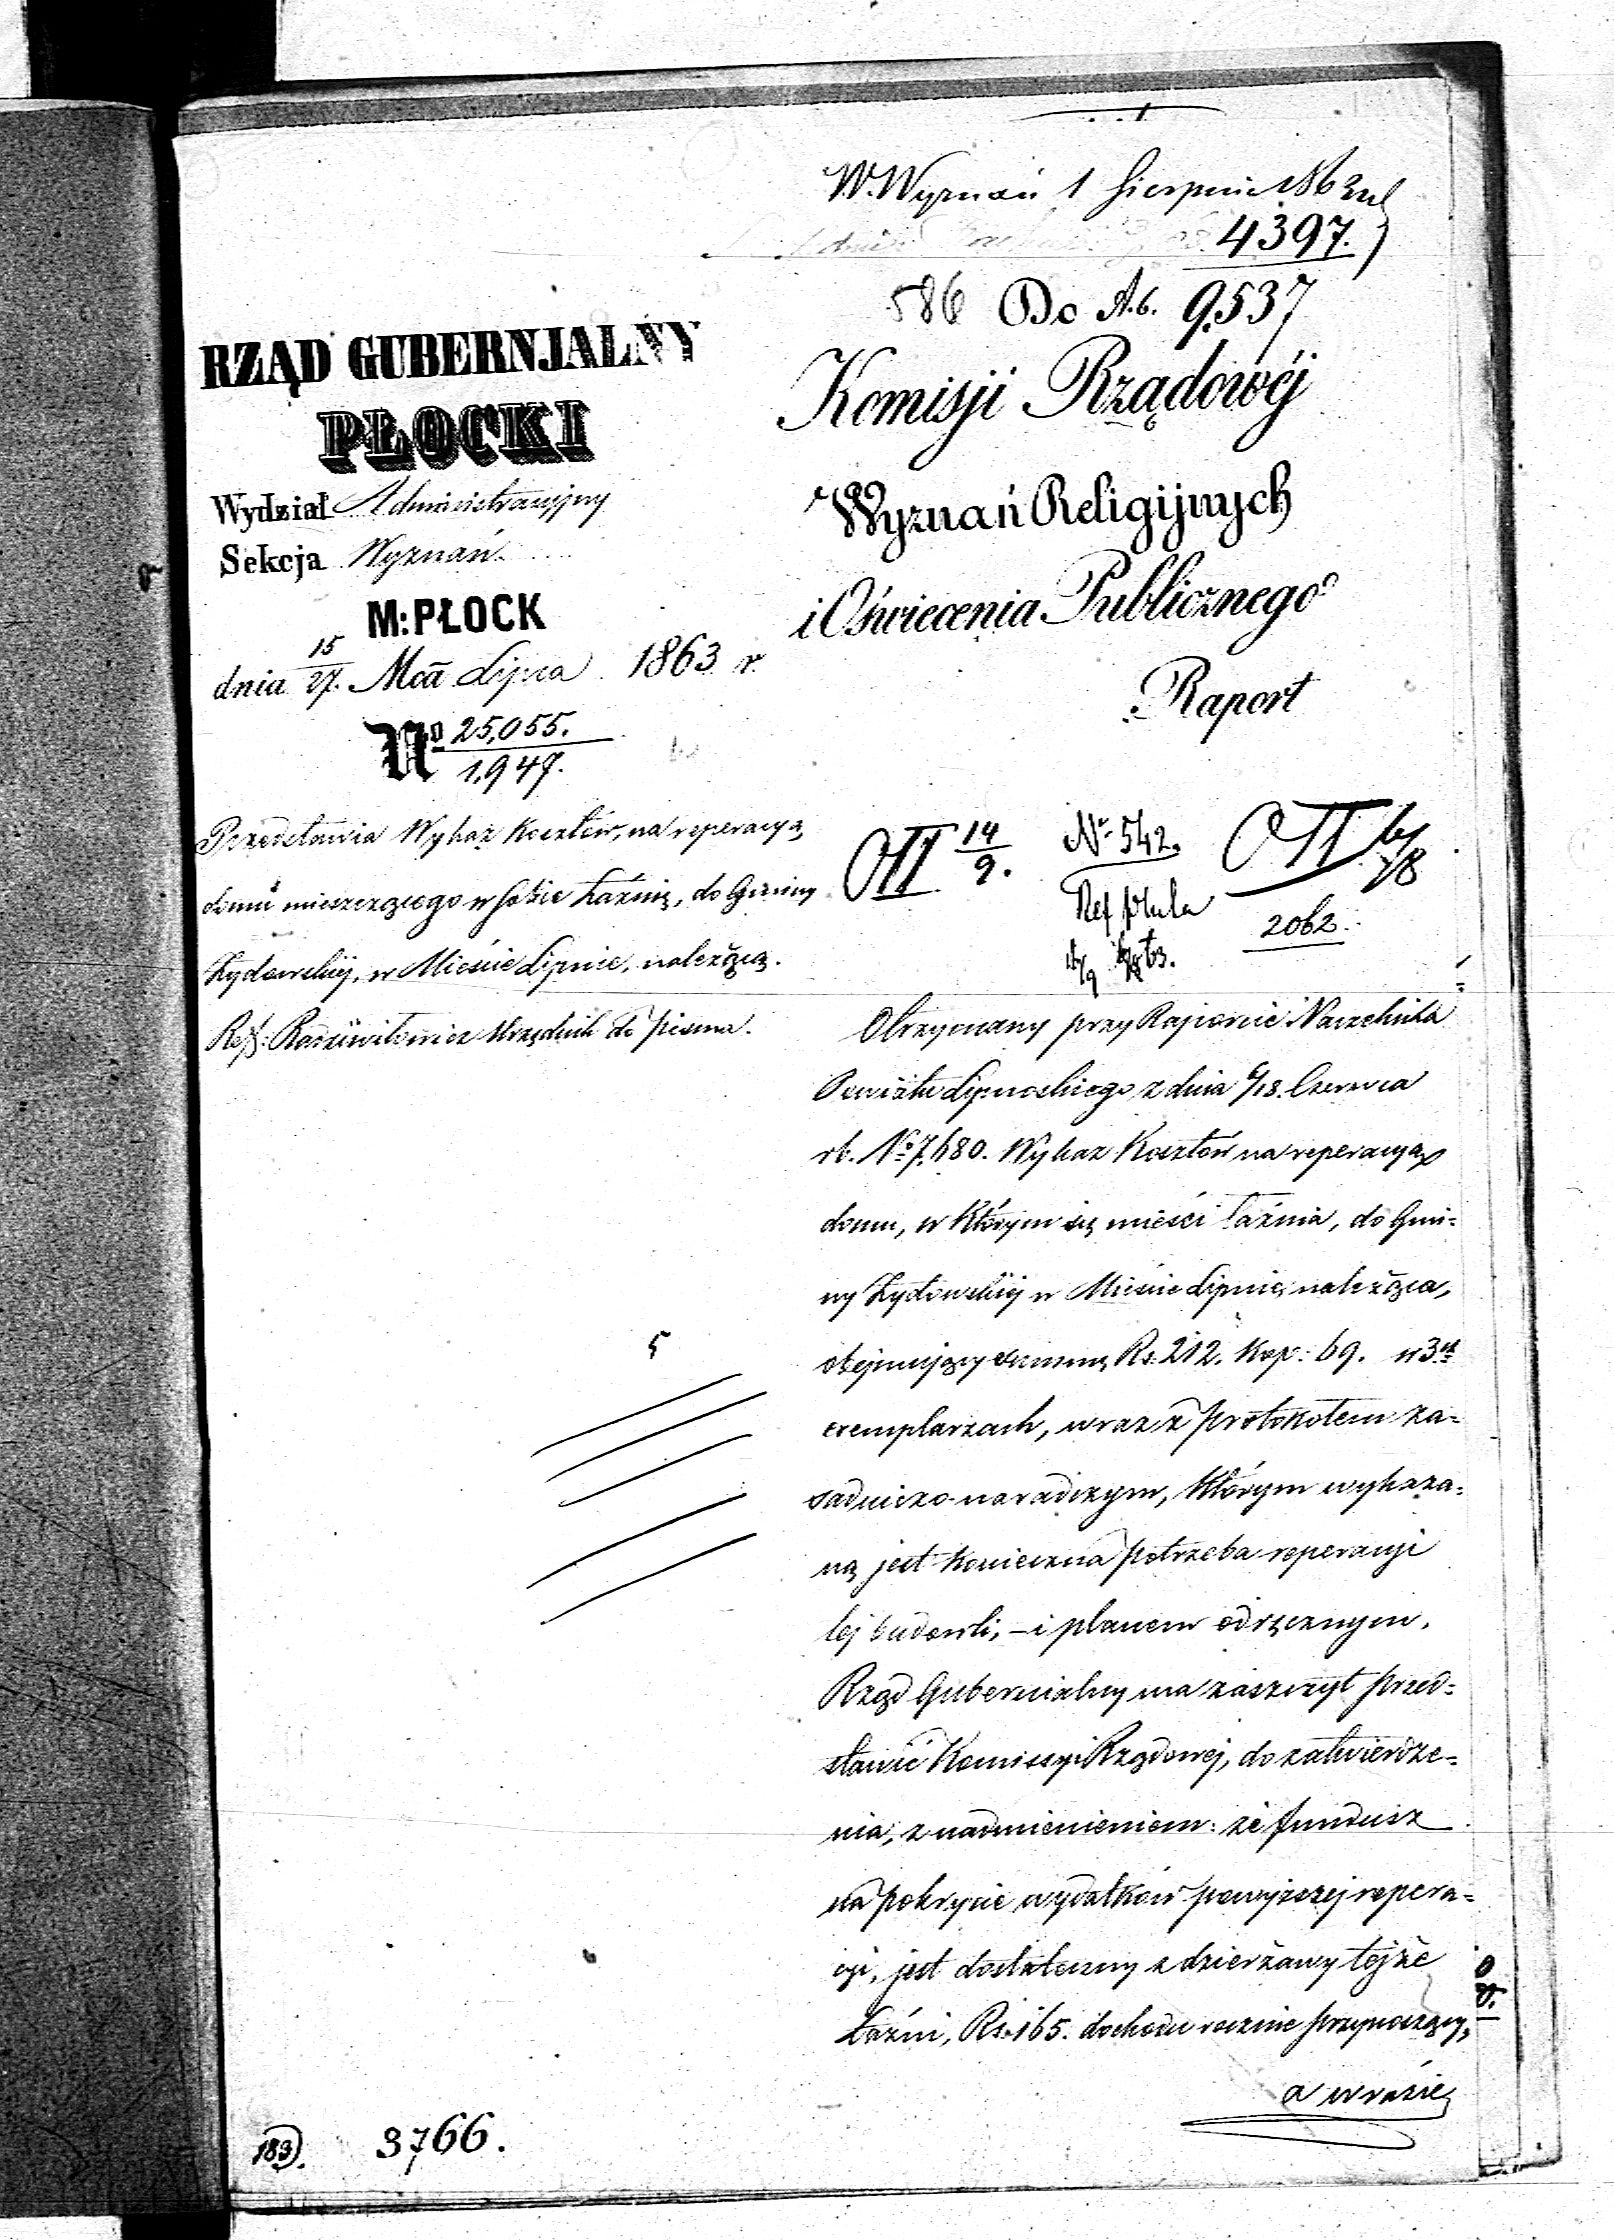 W. Wyznań 1 Sierpnia 1863
4397.
586 Do A.6. 9,537
RZĄD GUBERNJALNY
PŁOCKI
Wydział Administracyjny
Sekcja Wyznań.
M: PŁOCK
dnia 15/27. Mca Lipca 1863 r.
No 25,055.
1,947.
Przedstawia Wykaz kosztów, na reperacyą
domu mieszczącego w sobie Łaźnię, do Gminy
Żydowskiéj, w Mieście Lipnie, należącą.
Ref: Urzędnik do pisma.
Komisji Rządowéj
Wyznań Religijnych
i Oświecenia Publicznego
Raport
14
9.
No 542.
Ref
2062.
Otrzymany przy Raporcie Naczelnika
Powiatu Lipnoskiego z dnia 6/18. Czerwca
rb. No 7,680. Wykaz Kosztów na reperacyą
domu, w którym się mieści Łaźnia, do Gmi=
ny Żydowskiéj w Mieście Lipnie, należąca,
obejmujący summę Rs. 212. kop: 69. w 3ch
exemplarzach, wraz z protokołem za=
sadniczo-naradczym, którym wykaza=
ną jest konieczna potrzeba reperacji
téj budowli, – i planem odręcznym.
Rząd Gubernialny ma zaszczyt przed=
stawić Komissyi Rządowej, do zatwierdze=
nia, z nadmienieniem: że fundusz
na pokrycie wydatków powyższej repera=
cyi, jest dostateczny z dzierżawy tejże
Łaźni, Rs. 165. dochodu rocznie przynoszący,
a w razie
183. 3766.